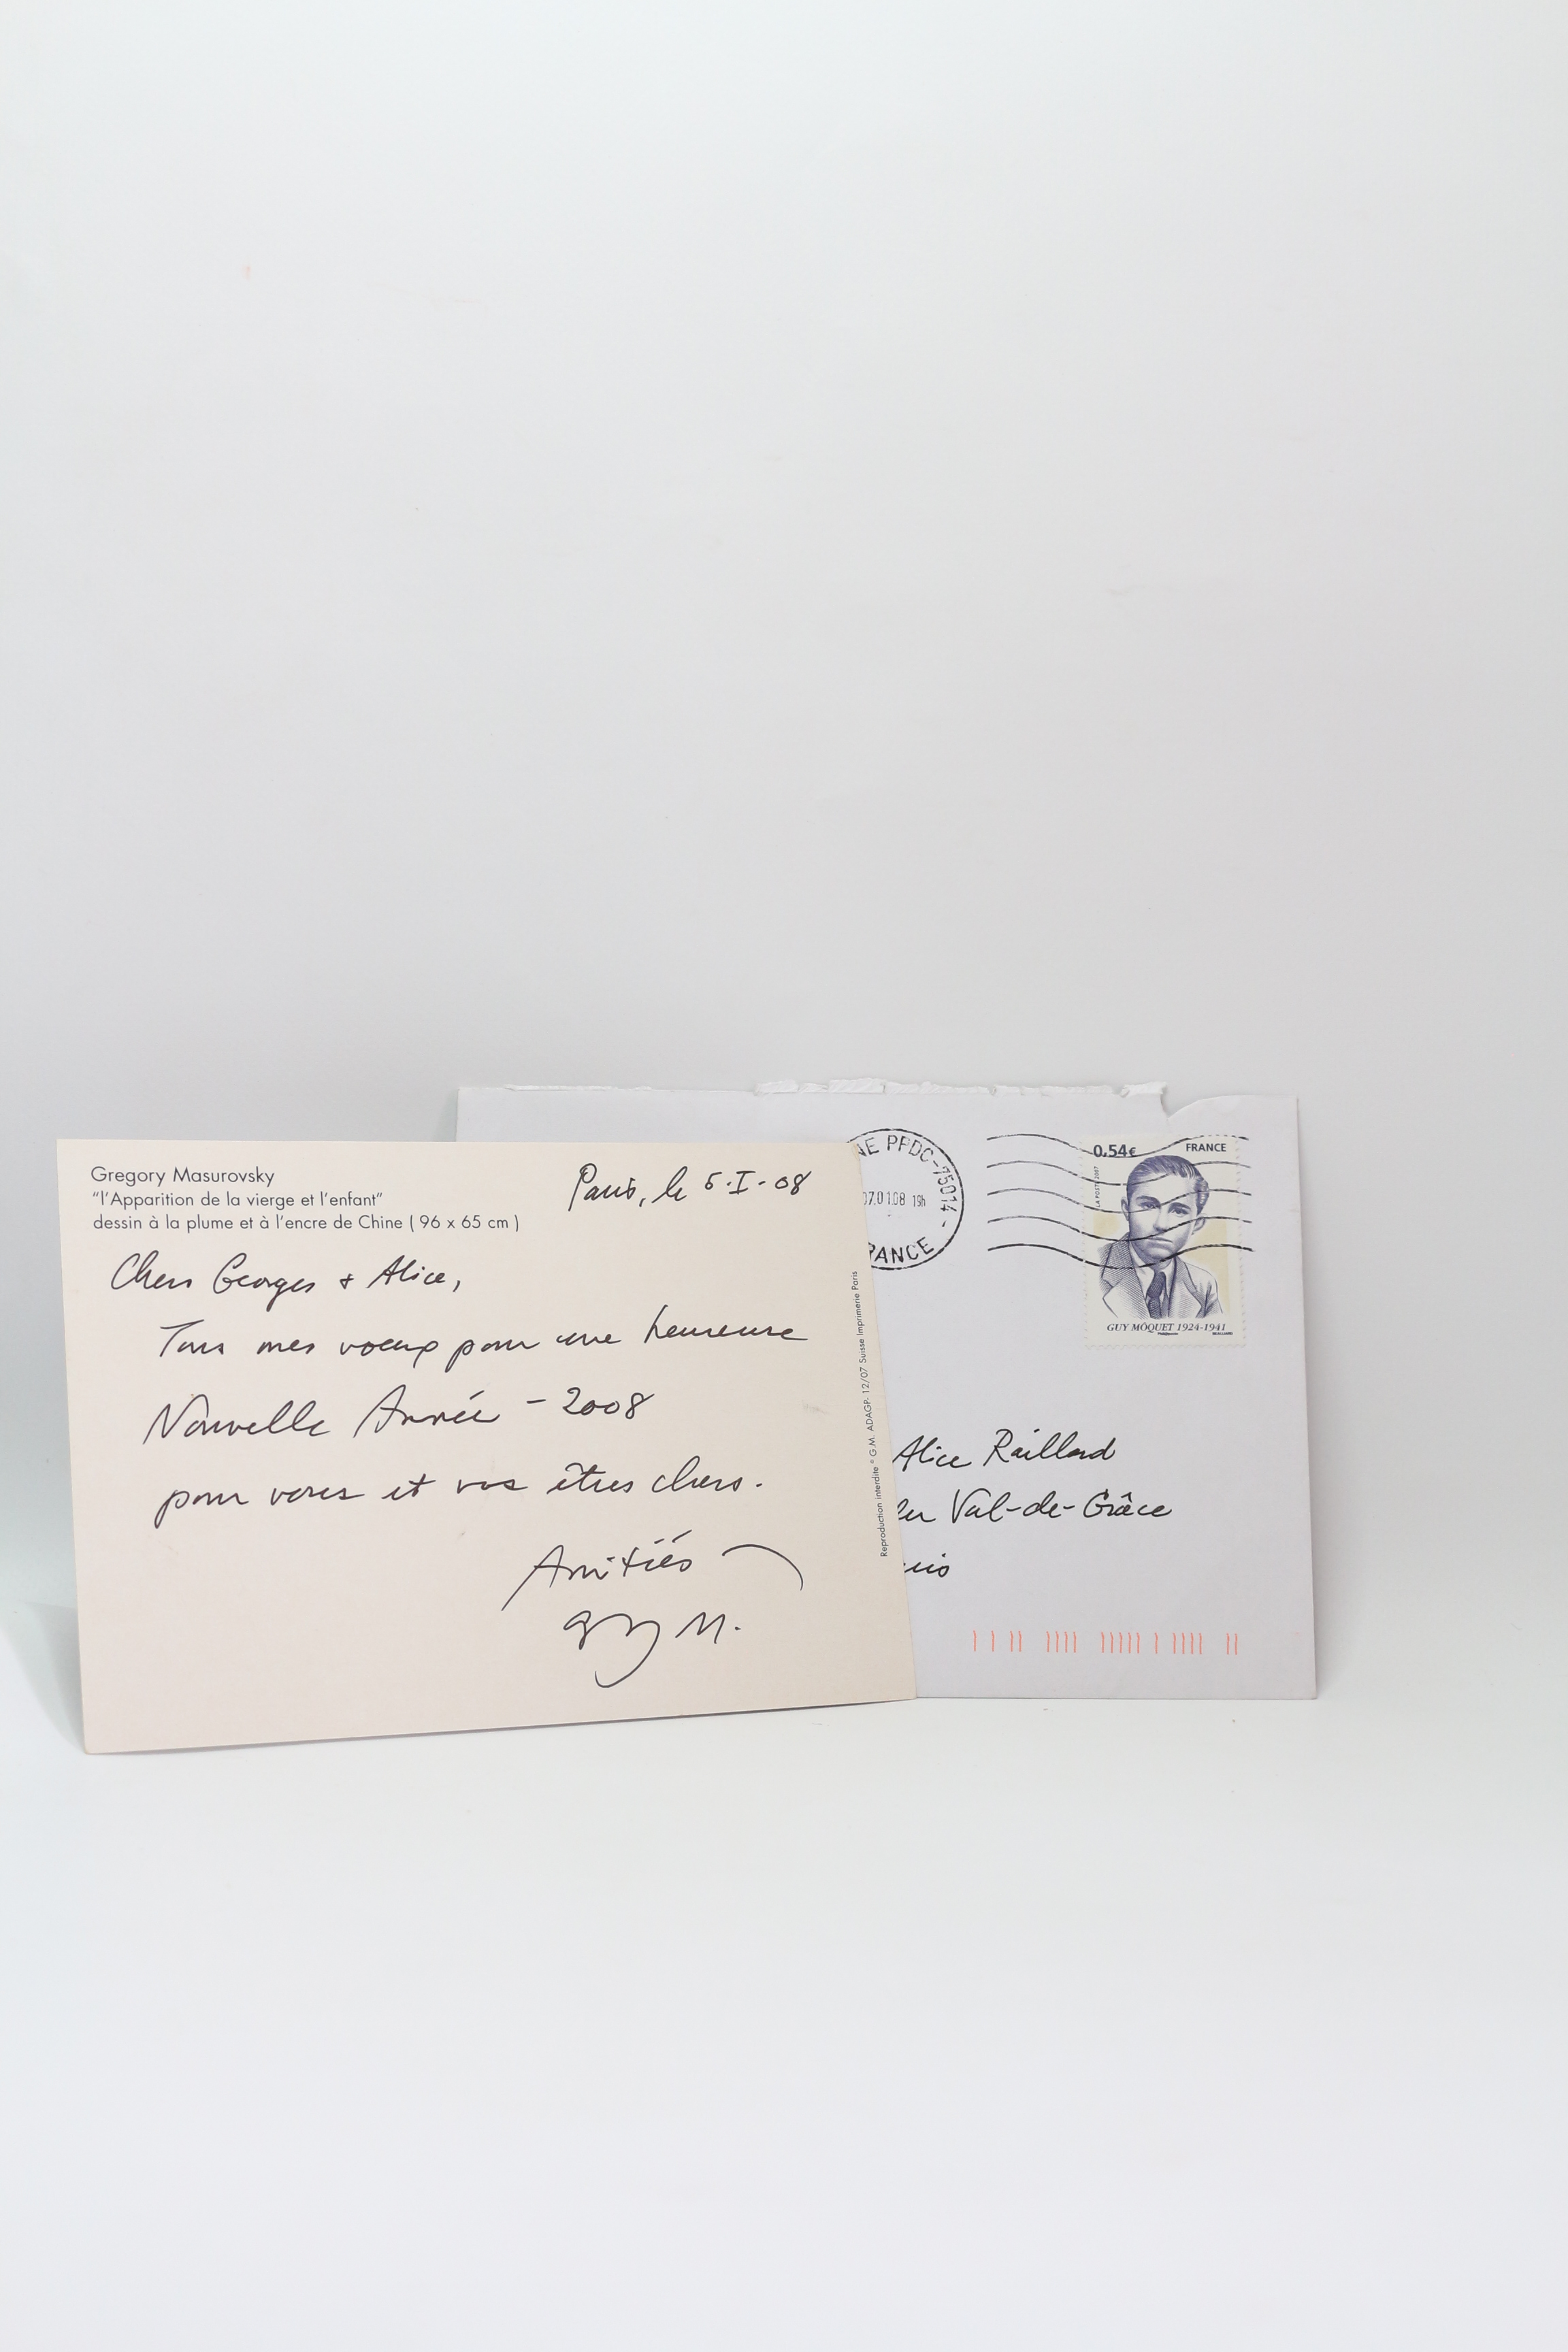 Gregory Masurovsky
"l'Apparition de la vierge et l'enfant"
dessin à la plume et à l'encre de Chine ( 96 x 65 cm )
Paris, le 5·I·08
Chers Georges + Alice,
Tous mes voeux pour une heureuse
Nouvelle Année - 2008
pour vous et vos êtres chers.
Amitiés
M.
Reproduction interdite © G.M. ADAGP. 12/07 Suisse Imprimerie Paris
NE PPDC-75014-
07.01.08 19h
RANCE
0,54€ FRANCE
LA POSTE 2007
GUY MÔQUET 1924-1941
Alice Raillard
du Val-de-Grâce